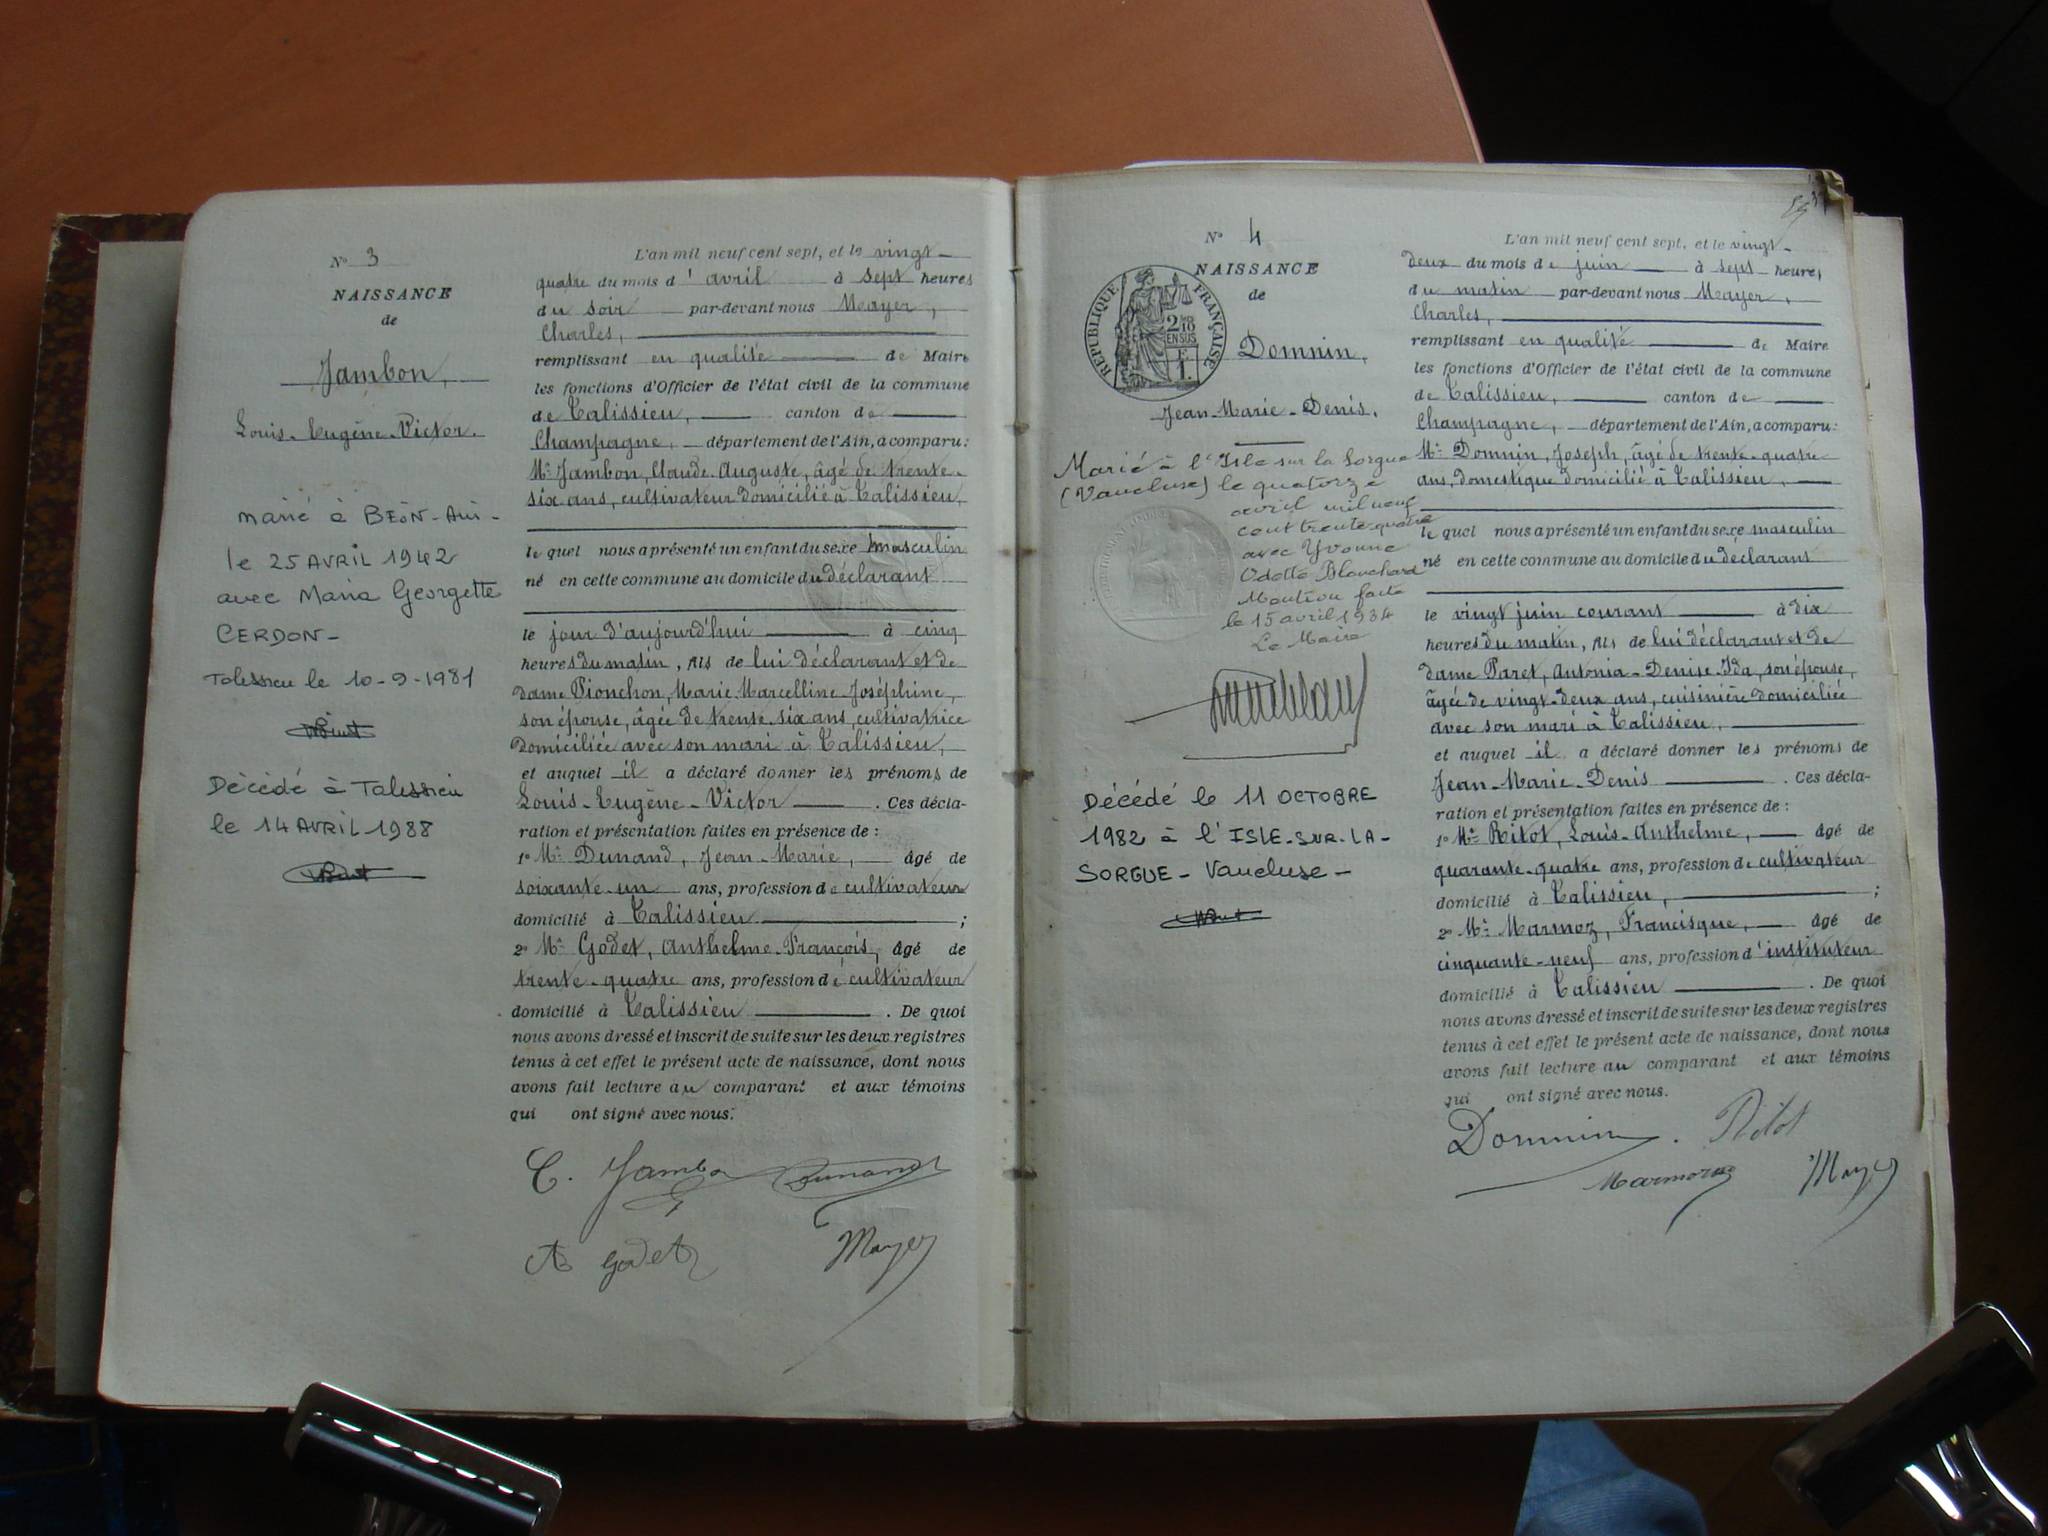 N° 3
NAISSANCE
de
Jambon,
Louis-Eugène-Victor.
marié à BÉON-Ain-
le 25 AVRIL 1942
avec Maria Georgette
CERDON-
Talissieu le 10-9-1981
Décédé à Talissieu
le 14 AVRIL 1988
L'an mil neuf cent sept, et le vingt-
quatre du mois d'avril à sept heures
du soir par-devant nous Mayer,
Charles,
remplissant en qualité de Maire
les fonctions d'Officier de l'état civil de la commune
de Talissieu, canton de
Champagne, département de l'Ain, a comparu:
Mr Jambon, Claude Auguste, âgé de trente-
six ans, cultivateur domicilié à Talissieu,
le quel nous a présenté un enfant du sexe masculin
né en cette commune au domicile du déclarant
le jour d'aujourd'hui à cinq
heures du matin, fils de lui déclarant et de
dame Pionchon, Marie Marcelline Joséphine,
son épouse, âgée de trente-six ans, cultivatrice
domiciliée avec son mari à Talissieu,
et auquel il a déclaré donner les prénoms de
Louis-Eugène-Victor . Ces décla-
ration et présentation faites en présence de :
1° Mr Dunand, Jean-Marie, âgé de
soixante-un ans, profession de cultivateur
domicilié à Talissieu ;
2° Mr Godet, Anthelme-François, âgé de
trente-quatre ans, profession de cultivateur
domicilié à Talissieu . De quoi
nous avons dressé et inscrit de suite sur les deux registres
tenus à cet effet le présent acte de naissance, dont nous
avons fait lecture au comparant et aux témoins
qui ont signé avec nous.
C. Jambon Dunand
A Godet Mayer
N° 4
NAISSANCE
de
RÉPUBLIQUE FRANÇAISE
2/10 EN SUS
1 F.
Domnin,
Jean-Marie-Denis.
Marié à l'Isle sur la Sorgue
(Vaucluse) le quatorze
avril mil neuf
cent trente-quatre
avec Yvonne
Odette Blanchard
Mention faite
le 15 avril 1934
Le Maire
Décédé le 11 OCTOBRE
1982 à l'ISLE-SUR-LA-
SORGUE - Vaucluse -
L'an mil neuf cent sept, et le vingt-
deux du mois de juin à sept heures
du matin par-devant nous Mayer,
Charles,
remplissant en qualité de Maire
les fonctions d'Officier de l'état civil de la commune
de Talissieu, canton de
Champagne, département de l'Ain, a comparu:
Mr Domnin, Joseph, âgé de trente-quatre
ans, domestique domicilié à Talissieu,
le quel nous a présenté un enfant du sexe masculin
né en cette commune au domicile du déclarant
le vingt juin courant à dix
heures du matin, fils de lui déclarant et de
dame Paret, Antonia-Denise-Ida, son épouse,
âgée de vingt-deux ans, cuisinière domiciliée
avec son mari à Talissieu,
et auquel il a déclaré donner les prénoms de
Jean-Marie-Denis . Ces décla-
ration et présentation faites en présence de :
1° Mr Ritot, Louis-Anthelme, âgé de
quarante-quatre ans, profession de cultivateur
domicilié à Talissieu, ;
2° Mr Marmoz, Francisque, âgé de
cinquante-neuf ans, profession d'instituteur
domicilié à Talissieu . De quoi
nous avons dressé et inscrit de suite sur les deux registres
tenus à cet effet le présent acte de naissance, dont nous
avons fait lecture au comparant et aux témoins
qui ont signé avec nous.
Domnin . Ritot
Marmoz Mayer